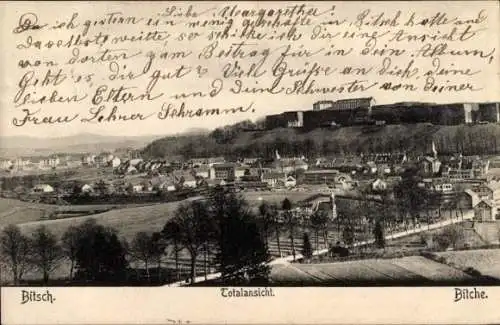 Liebe Margarethe!
Da ich gestern ein wenig Geschäfte in Bitsch hatte und
Dasselbst weilte so schicke ich dir eine Ansicht
von dorten zum Beitrag für in dein Album,
Geht es dir gut? Viele Grüsse an Dich, deine
lieben Eltern und Dein Schwester von Deiner
Frau Lehrer Schramm.
Bitsch. Totalansicht. Bitche.